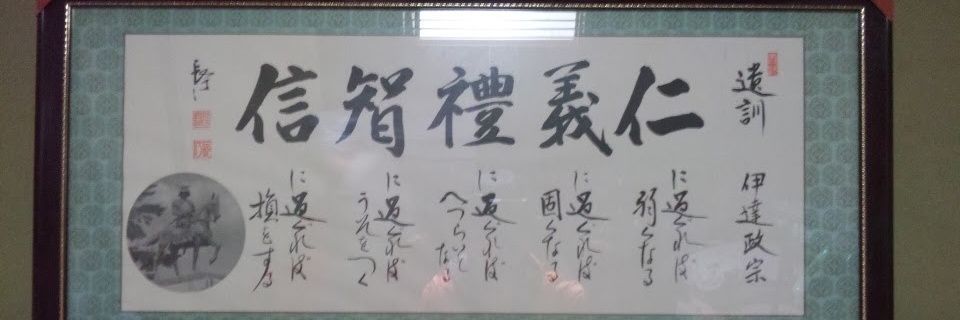 遺訓
伊達政宗
仁
に過ぐれば
弱くなる
義
に過ぐれば
固くなる
禮
に過ぐれば
へつらいと
なる
智
に過ぐれば
うそをつく
信
に過ぐれば
損をする